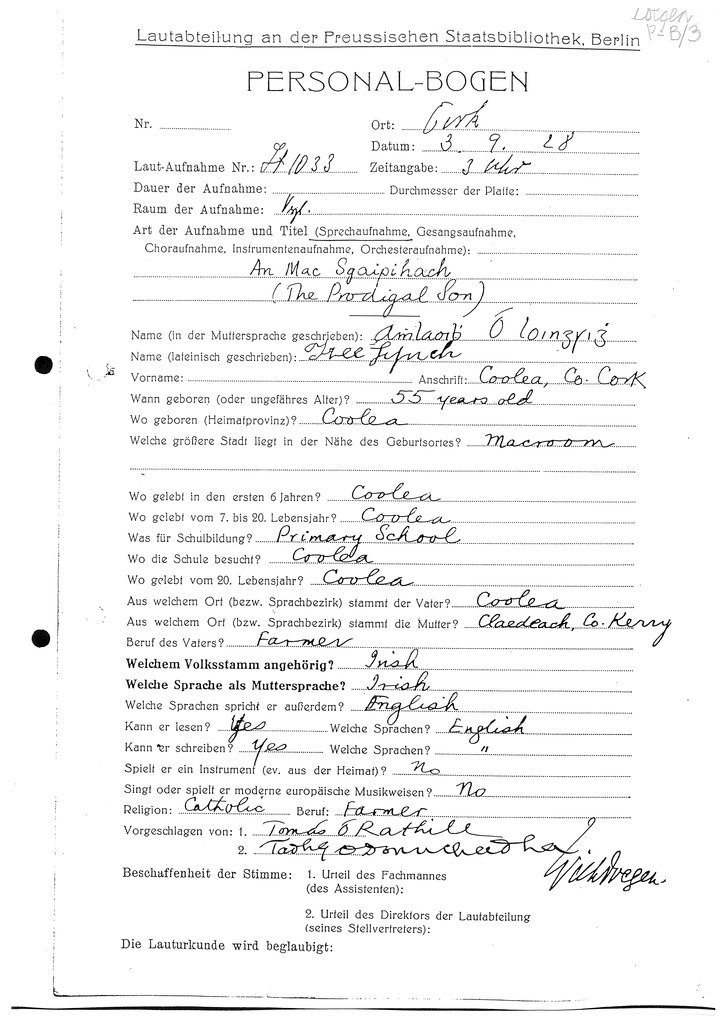 Lautabteilung an der Preussischen Staatsbibliothek, Berlin
PERSONAL-BOGEN
Nr. Ort: Cork
Datum: 3. 9. 28
Laut-Aufnahme Nr.: LA 1033 Zeitangabe: 3 Uhr
Dauer der Aufnahme: Durchmesser der Platte:
Raum der Aufnahme:
Art der Aufnahme und Titel (Sprechaufnahme, Gesangsaufnahme,
Choraufnahme, Instrumentenaufnahme, Orchesteraufnahme):
An Mac Sgaipihach
(The Prodigal Son)
Name (in der Muttersprache geschrieben): Amlaoib Ó loingsig
Name (lateinisch geschrieben): Lynch
Vorname: Anschrift: Coolea, Co. Cork
Wann geboren (oder ungefähres Alter)? 55 years old
Wo geboren (Heimatprovinz)? Coolea
Welche größere Stadt liegt in der Nähe des Geburtsortes? Macroom
Wo gelebt in den ersten 6 Jahren? Coolea
Wo gelebt vom 7. bis 20. Lebensjahr? Coolea
Was für Schulbildung? Primary School
Wo die Schule besucht? Coolea
Wo gelebt vom 20. Lebensjahr? Coolea
Aus welchem Ort (bezw. Sprachbezirk) stammt der Vater? Coolea
Aus welchem Ort (bzw. Sprachbezirk) stammt die Mutter? Claedeach, Co. Kerry
Beruf des Vaters? Farmer
Welchem Volksstamm angehörig? Irish
Welche Sprache als Muttersprache? Irish
Welche Sprachen spricht er außerdem? English
Kann er lesen? Yes Welche Sprachen? English
Kann er schreiben? Yes Welche Sprachen? "
Spielt er ein Instrument (ev. aus der Heimat)? No
Singt oder spielt er moderne europäische Musikweisen? No
Religion: Catholic Beruf: Farmer
Vorgeschlagen von: 1. Tomás Ó Rathile
2. Tadhg
Beschaffenheit der Stimme: 1. Urteil des Fachmannes
(des Assistenten):
2. Urteil des Direktors der Lautabteilung
(seines Stellvertreters):
Die Lauturkunde wird beglaubigt: